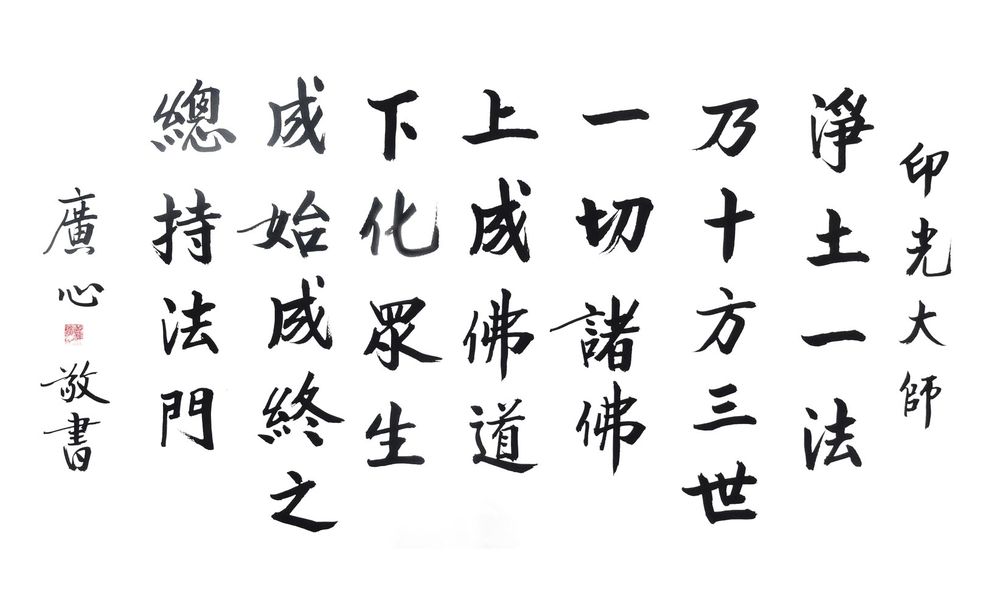 印光大師
淨土一法
乃十方三世
一切諸佛
上成佛道
下化眾生
成始成終之
總持法門
廣心
敬書